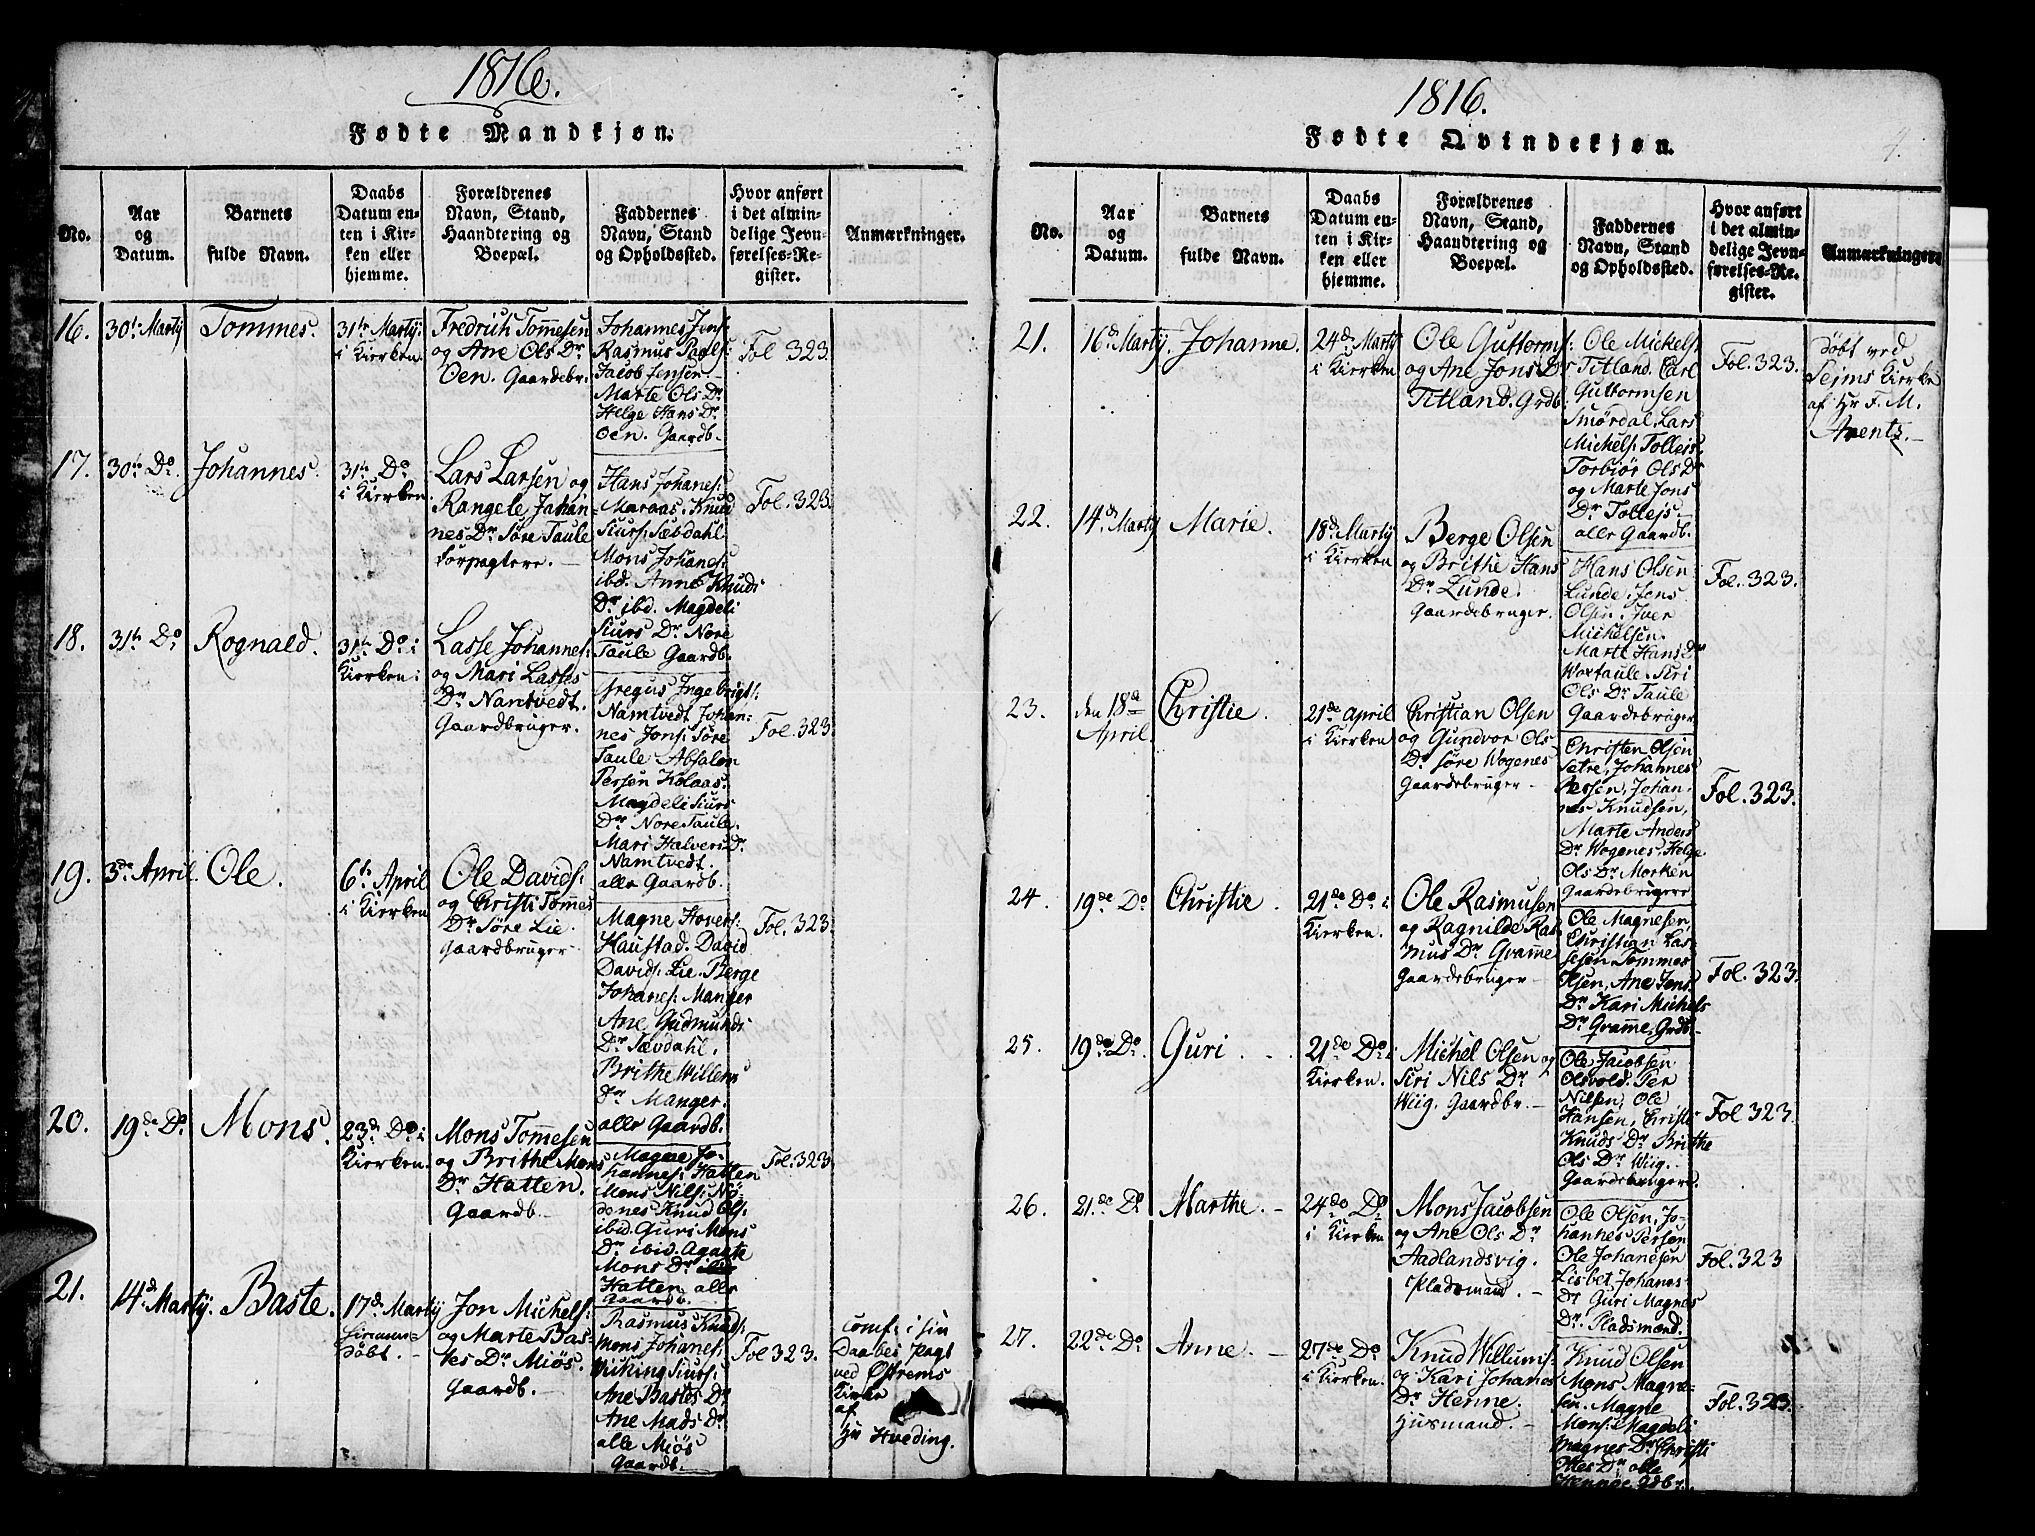 1816.
Fødte Mandkjøn.
No.
Aar
og
Datum.
Barnets
fulde Navn.
Daabs
Datum en-
ten i Kir-
ken eller
hjemme.
Forældrenes
Navn, Stand,
Haandtering og
Boepæl.
Faddernes
Navn, Stand
og Opholdssted.
Hvor anført
i det almin-
delige Jevn-
førelses-Re-
gister.
Anmærkninger.
16.
30te Martÿ
Tommes.
31te Martÿ:
i Kierken.
Fredrich Tom̄esen
og Ane Ols Dr
Oen. Gaardebr.
Johannes Jens:
Rasmus Poels:
Jacob Jensen
Marte Ols Dr
Helge Hans Dr
Oen. Gaardb.
Fol 323.
17.
30te Do.
Johannes.
31te Do
i Kierken.
Lars Larsen og
Rangele Johan-
nes Dr Søre Taule
forpagtere.
Hans Johanes:
Maraas. Knud
Siurs: Sæbdahl
Mons Johanes:
ibd. Anne Knuds
Dr ibd. Magdeli
Siurs Dr Nore
Taule Gaardb.
Fol. 323.
18.
31te Do
Rognald.
31te Do i
Kierken:
Lasse Johannes:
og Mari Lasses
Dr Namtvedt.
Gaardbruger.
Gregus Ingebrigts:
Namtvedt Johan-
nes Jons: Søre
Taule Absalon
Persen Kolaas.
Magdeli Siurs
Dr Nore Taule.
Mari Halvers Dr
Namtvedt.
alle Gaardb.
Fol. 323.
19.
3de April.
Ole.
6te April
i Kierken
Ole Davids:
og Christi Tomes
Dr Søre Lie
Gaardbruger
Magne Hovers:
Haustad. David
Davids: Lie. Berge
Johanes: Manger
Ane Gudmunds
Dr Sævdahl.
Brithe Willems
Dr Manger.
alle Gaardb.
Fol. 323.
20.
19de Do.
Mons.
23de Do i
Kierken.
Mons Tom̄esen
og Brithe Mons
Dr Hatten.
Gaardb.
Magne Jo-
hannes: Hatten
Mons Nils: Nö-
denes Knud Ols:
ibid. Guri Mons
Dr ibid. Agagte
Mons Dr
Hatten alle
Gaardb.
Fol. 323.
21.
14de Martÿ.
Baste.
17de Martÿ
døbt.
Jon Michels:
og Marte Bas-
tes Dr Miös.
Gaardb.
Rasmus Knuds:
Mons Johanes:
Wiking Siurs:
Ane Bastes Dr
Ane Mads Dr
alle Miös
Gaardb.
Fol 323.
Comf: i sin
Daabes Pagt
ved Østrems
Kirke
af
Hr Hveding.
1816.
Fødte Qvindekjøn.
4.
No.
Aar
og
Datum.
Barnets
fulde Navn.
Daabs
Datum en-
ten i Kir-
ken eller
hjemme.
Forældrenes
Navn, Stand,
Haandtering og
Boepæl.
Faddernes
Navn, Stand
og Opholdssted.
Hvor anført
i det almin-
delige Jevn-
førelses-Re-
gister.
Anmærkninger.
21.
16de Martÿ.
Johanne.
24de Marty
i Kierken
Ole Guttorms:
og Ane Jons Dr
Titland. Grdb.
Ole Mickels:
Titland. Carl
Guttormsen
Smørdal. Lars
Michels: Tolleis.
Torbiør Ols Dr
og Marte Jons
Dr Tolleis
alle Gaardb.
Fol. 323.
døbt ved
Sejms Kierke
af Hr F. M.
Arentz.
22.
14de Martÿ
Marie.
18de Martÿ
i Kierken
Berge Olsen
og Brithe Hans
Dr Lunde.
Gaardebruger.
Hans Olsen
Lunde. Jens
Olsen. Iver
Michelsen.
Marte Hans Dr
Woxtaule. Siri
Ols Dr Taule
Gaardebruger
Fol. 323.
23.
den 18de
April.
Christie.
21de April
i Kierken
Christian Olsen
og Gundvor Ols
Dr Søre Wogenes
Gaardebruger
Christen Olsen
Sætre, Johannes
Aessen, Johan-
nes Knudsen,
Marte Anders
Dr Wogenes, Helge
Ols Dr Morken
Gaardebrugere
Fol. 323.
24.
19de Do
Christie.
21de Do i
Kierken.
Ole Rasmusen
og Ragnilde Ras-
mus Dr Gram̄e
Gaardebruger
Ole Magnesen,
Christian Las-
sesen Tommes
Olsen, Ane Jens
Dr Kari Michels
Dr Gram̄e, Grdb.
Fol. 323.
25.
19de Do.
Guri.
21de Do i
Kierken.
Michel Olsen og
Siri Nils Dr
Wiig. Gaardbr.
Ole Jacobsen
Olsvold. Per
Nilsen, Ole
Hansen, Christi
Knuds Dr Brithe
Ols Dr Wiig.
Gaardebrugere.
Fol 323.
26.
21de Do.
Marthe.
24de Do
i Kierken.
Mons Jacobsen
og Ane Ols Dr
Aadlandsvig.
Pladsmand.
Ole Olsen, Jo-
hannes Persen
Ole Johanesen
Lisbet Johanes-
Dr Guri Magnes
Dr Pladsmænd.
Fol. 323
27.
22de Do
Anne.
27de Do
i Kierken.
Knud Willums:
og Kari Johanes
Dr Henne.
Husmand.
Knud Olsen
Mons Magne-
sen. Magne
Mons: Magdeli
Magnes Dr Christi
Ottes Dr alle
Hennes Gdbr.
Fol. 323.